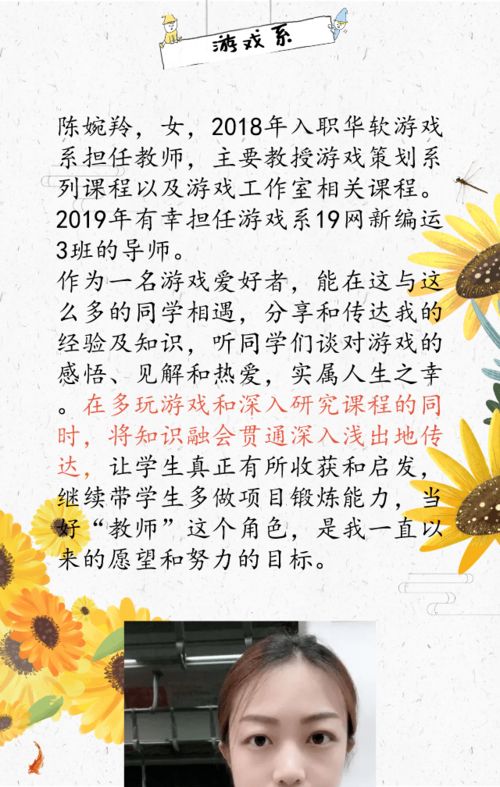 游戏系
陈婉羚，女，2018年入职华软游戏
系担任教师，主要教授游戏策划系
列课程以及游戏工作室相关课程。
2019年有幸担任游戏系19网新编运
3班的导师。
作为一名游戏爱好者，能在这与这
么多的同学相遇，分享和传达我的
经验及知识，听同学们谈对游戏的
感悟、见解和热爱，实属人生之幸
。在多玩游戏和深入研究课程的同
时，将知识融会贯通深入浅出地传
达，让学生真正有所收获和启发，
继续带学生多做项目锻炼能力，当
好“教师”这个角色，是我一直以
来的愿望和努力的目标。